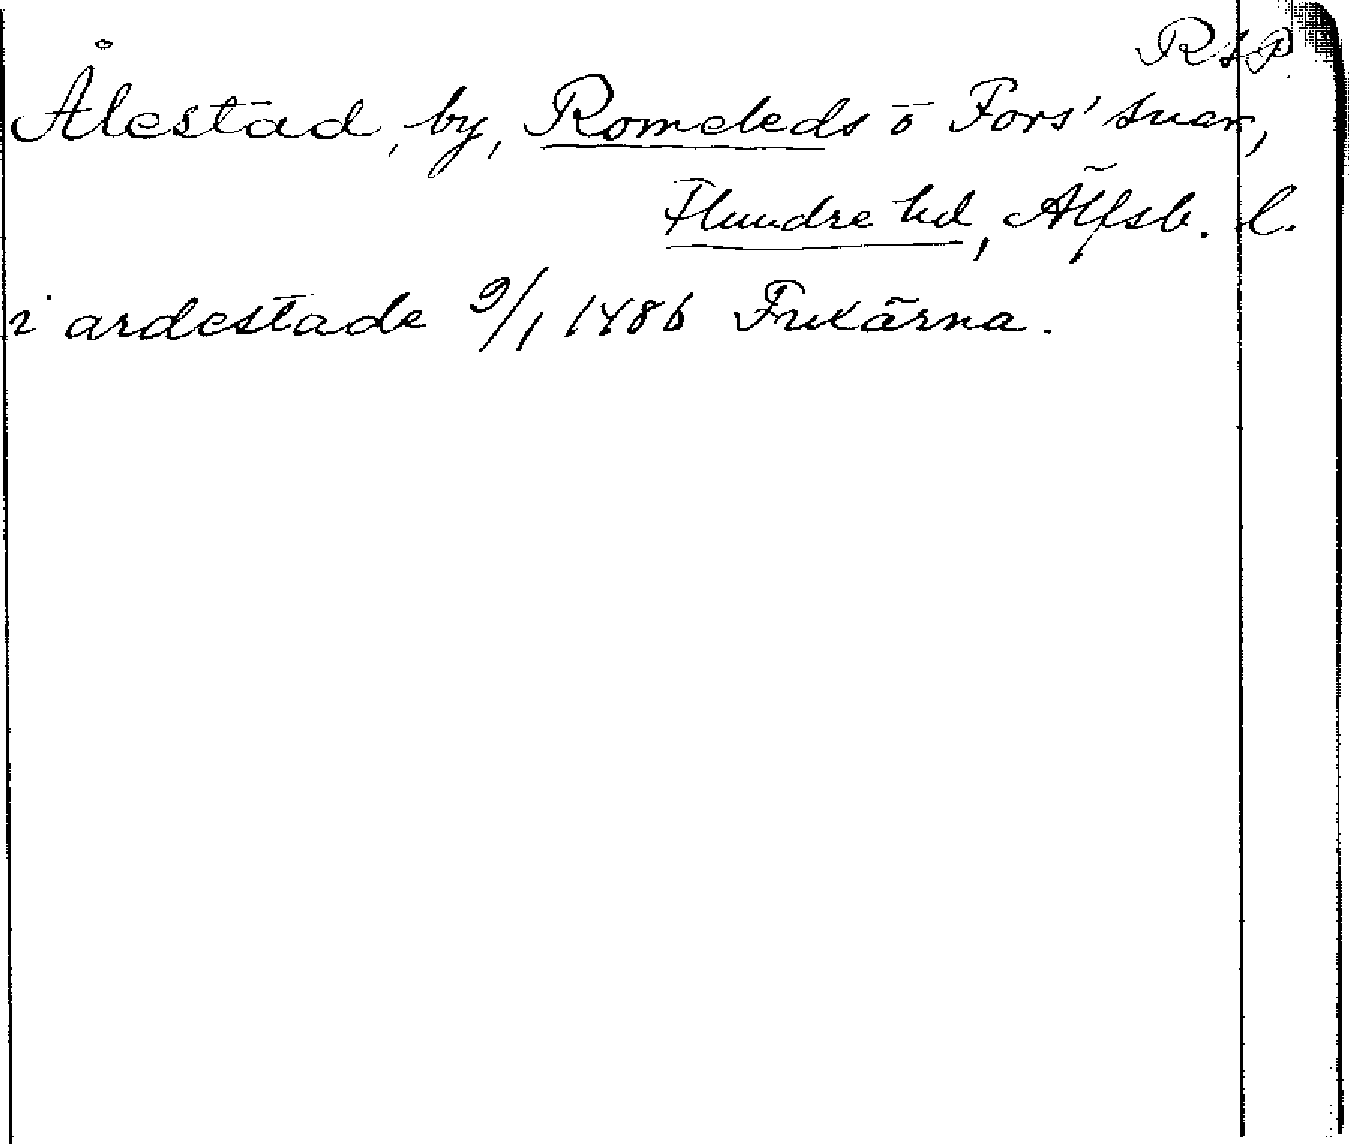 RSP
Ålestad, by, Romeleds o Fors' snar,
Flundre hd, Älfsb. l.
i ardestade 9/1 1486 Frekärna.